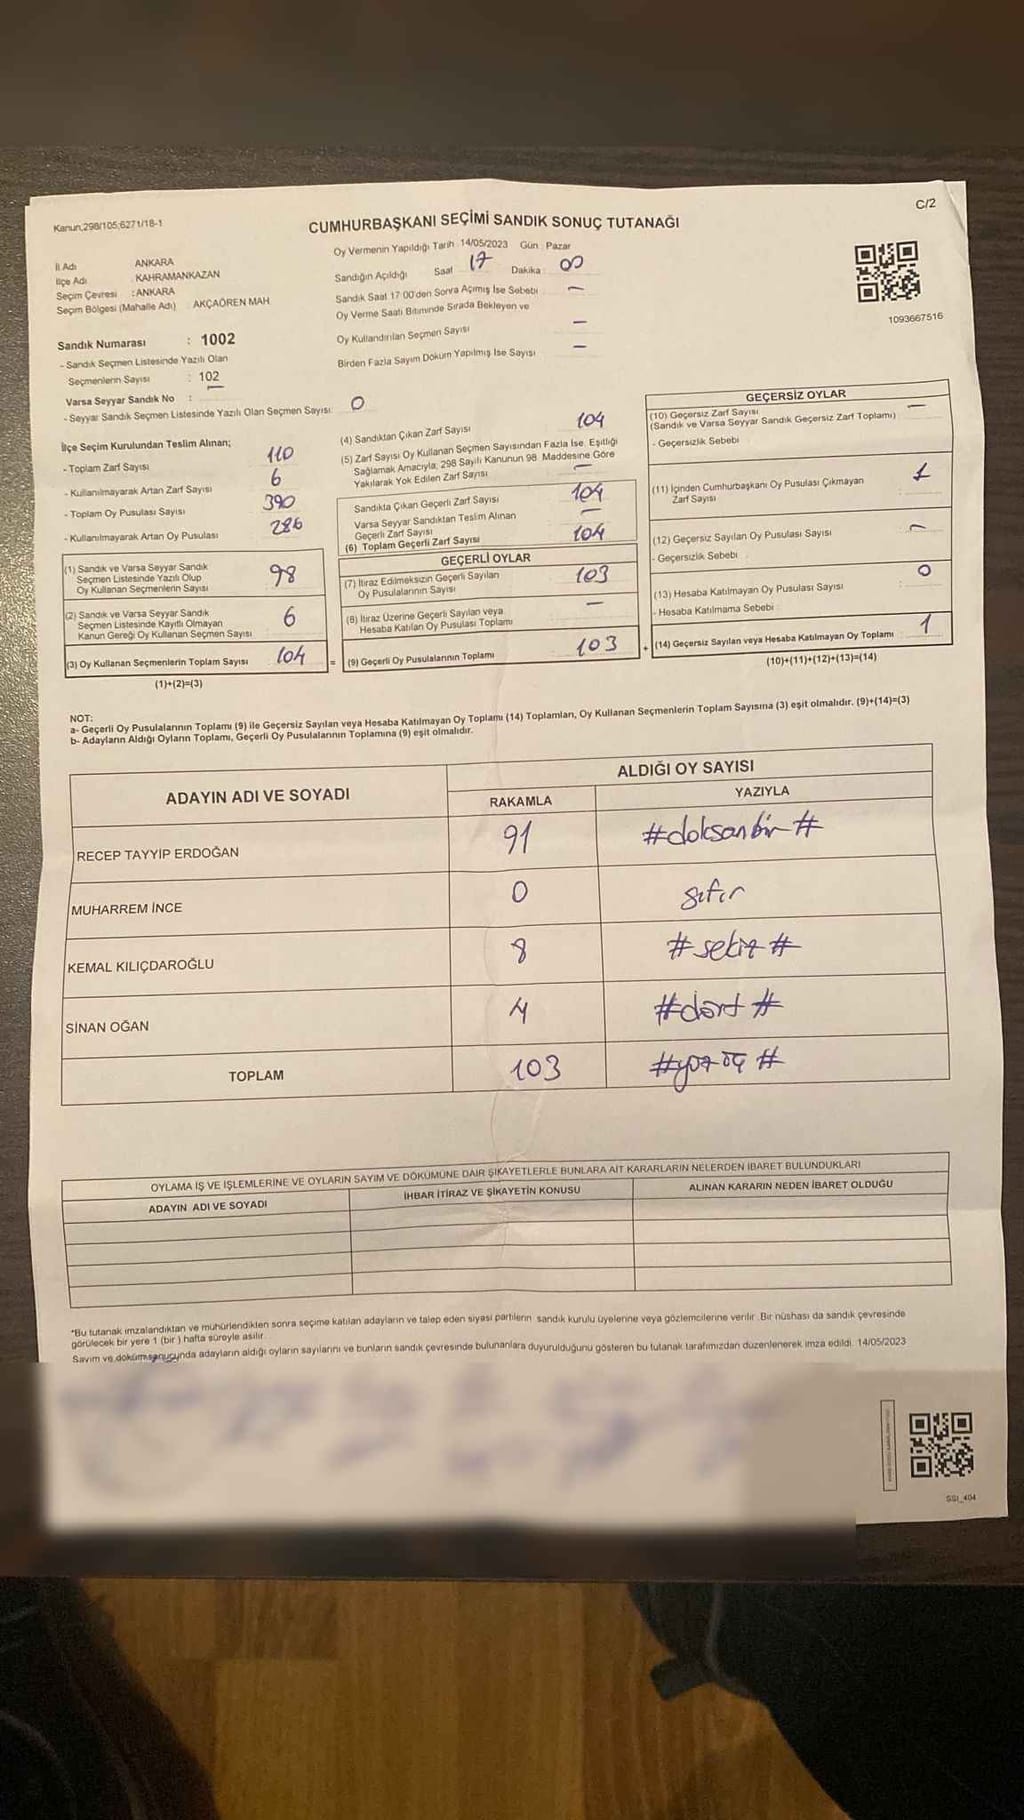 Kanun,298/105;6271/18-1
C/2
CUMHURBAŞKANI SEÇİMİ SANDIK SONUÇ TUTANAĞI
İl Adı ANKARA
İlçe Adı KAHRAMANKAZAN
Seçim Çevresi : ANKARA
Seçim Bölgesi (Mahalle Adı) AKÇAÖREN MAH
Oy Vermenin Yapıldığı Tarih 14/05/2023 Gün Pazar
Sandığın Açıldığı Saat 17 Dakika 00
Sandık Saat 17 00'den Sonra Açımış İse Sebebi –
Oy Verme Saati Bitiminde Sırada Bekleyen ve
Oy Kullandırılan Seçmen Sayısı –
Birden Fazla Sayım Döküm Yapılmış İse Sayısı –
1093667516
Sandık Numarası : 1002
- Sandık Seçmen Listesinde Yazılı Olan
Seçmenlerin Sayısı : 102
Varsa Seyyar Sandık No : –
- Seyyar Sandık Seçmen Listesinde Yazılı Olan Seçmen Sayısı: 0
İlçe Seçim Kurulundan Teslim Alınan;
- Toplam Zarf Sayısı 110
- Kullanılmayarak Artan Zarf Sayısı 6
- Toplam Oy Pusulası Sayısı 390
- Kullanılmayarak Artan Oy Pusulası 286
(1) Sandık ve Varsa Seyyar Sandık
Seçmen Listesinde Yazılı Olup
Oy Kullanan Seçmenlerin Sayısı 98
(2) Sandık ve Varsa Seyyar Sandık
Seçmen Listesinde Kayıtlı Olmayan
Kanun Gereği Oy Kullanan Seçmen Sayısı 6
(3) Oy Kullanan Seçmenlerin Toplam Sayısı 104
(1)+(2)=(3)
(4) Sandıktan Çıkan Zarf Sayısı 104
(5) Zarf Sayısı Oy Kullanan Seçmen Sayısından Fazla İse, Eşitliği
Sağlamak Amacıyla, 298 Sayılı Kanunun 98. Maddesine Göre
Yakılarak Yok Edilen Zarf Sayısı –
Sandıkta Çıkan Geçerli Zarf Sayısı 104
Varsa Seyyar Sandıktan Teslim Alınan
Geçerli Zarf Sayısı –
(6) Toplam Geçerli Zarf Sayısı 104
GEÇERLİ OYLAR
(7) İtiraz Edilmeksizin Geçerli Sayılan
Oy Pusulalarının Sayısı 103
(8) İtiraz Üzerine Geçerli Sayılan veya
Hesaba Katılan Oy Pusulası Toplamı –
= (9) Geçerli Oy Pusulalarının Toplamı 103
GEÇERSİZ OYLAR
(10) Geçersiz Zarf Sayısı –
(Sandık ve Varsa Seyyar Sandık Geçersiz Zarf Toplamı)
- Geçersizlik Sebebi
(11) İçinden Cumhurbaşkanı Oy Pusulası Çıkmayan
Zarf Sayısı 1
(12) Geçersiz Sayılan Oy Pusulası Sayısı –
- Geçersizlik Sebebi
(13) Hesaba Katılmayan Oy Pusulası Sayısı 0
- Hesaba Katılmama Sebebi
+ (14) Geçersiz Sayılan veya Hesaba Katılmayan Oy Toplamı 1
(10)+(11)+(12)+(13)=(14)
NOT:
a- Geçerli Oy Pusulalarının Toplamı (9) ile Geçersiz Sayılan veya Hesaba Katılmayan Oy Toplamı (14) Toplamları, Oy Kullanan Seçmenlerin Toplam Sayısına (3) eşit olmalıdır. (9)+(14)=(3)
b- Adayların Aldığı Oyların Toplamı, Geçerli Oy Pusulalarının Toplamına (9) eşit olmalıdır.
ADAYIN ADI VE SOYADI
ALDIĞI OY SAYISI
RAKAMLA YAZIYLA
RECEP TAYYİP ERDOĞAN 91 #doksanbir#
MUHARREM İNCE 0 sıfır
KEMAL KILIÇDAROĞLU 8 #sekiz#
SİNAN OĞAN 4 #dört#
TOPLAM 103 #yüz üç#
OYLAMA İŞ VE İŞLEMLERİNE VE OYLARIN SAYIM VE DÖKÜMÜNE DAİR ŞİKAYETLERLE BUNLARA AİT KARARLARIN NELERDEN İBARET BULUNDUKLARI
ADAYIN ADI VE SOYADI İHBAR İTİRAZ VE ŞİKAYETİN KONUSU ALINAN KARARIN NEDEN İBARET OLDUĞU
*Bu tutanak imzalandıktan ve mühürlendikten sonra seçime katılan adayların ve talep eden siyasi partilerin sandık kurulu üyelerine veya gözlemcilerine verilir. Bir nüshası da sandık çevresinde
görülecek bir yere 1 (bir) hafta süreyle asılır.
Sayım ve döküm sonucunda adayların aldığı oyların sayılarını ve bunların sandık çevresinde bulunanlara duyurulduğunu gösteren bu tutanak tarafımızdan düzenlenerek imza edildi. 14/05/2023
SSI_404